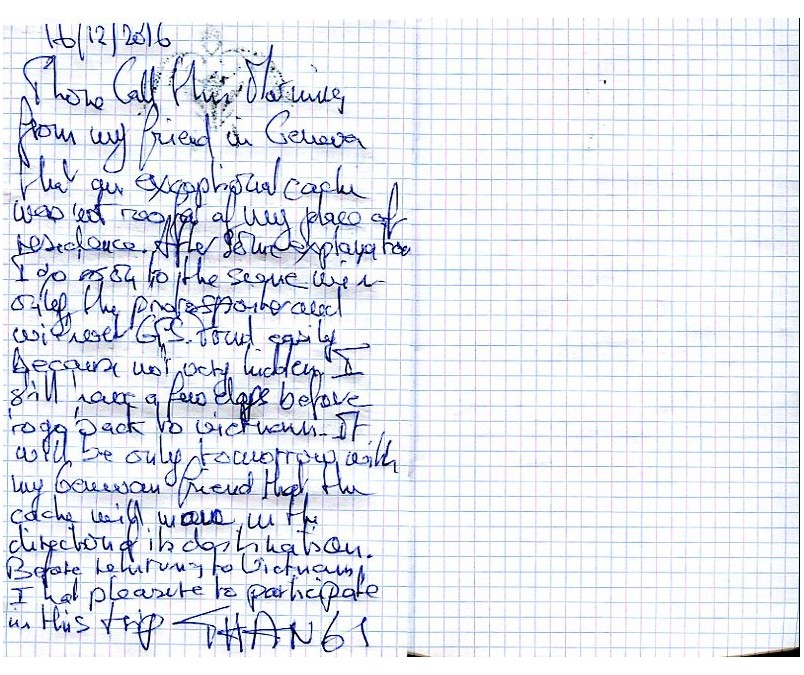 16/12/2016
Phone Call this Morning
from my friend in Geneva
that an exceptional cache
was not too far of my place of
residence. After some explanation
I go to the
only the and
without GPS. Found easily
because not very hidden. I
still have a few days before
to go back to Vietnam. It
will be only tomorrow with
my Genevan friend that the
cache will move in the
direction of its destination.
Before returning to Vietnam,
I had pleasure to participate
in this trip THAN61